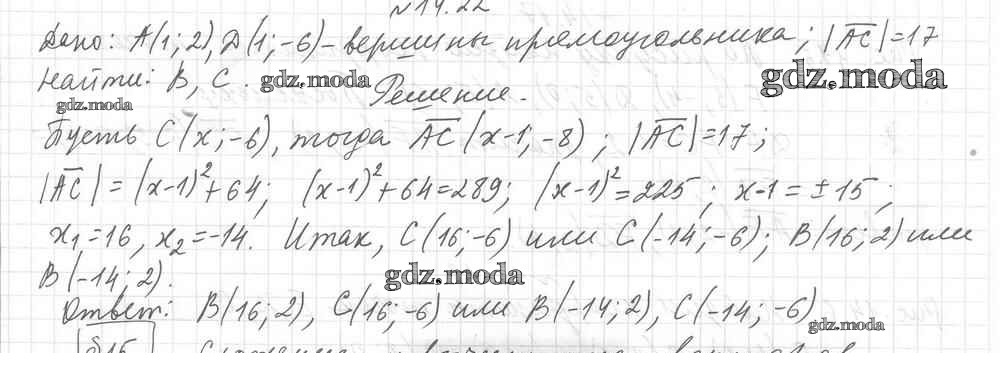 №14.22
Дано: A(1; 2), D(1; -6) - вершины прямоугольника; |AC|=17
gdz.moda
Найти: B, C.
gdz.moda
gdz.moda
Решение.
Пусть C(x; -6), тогда AC(x-1; -8); |AC|=17;
|AC| = (x-1)²+64; (x-1)²+64=289; (x-1)²=225; x-1=±15;
x₁=16, x₂=-14. Итак, C(16; -6) или C(-14; -6); B(16; 2) или
B(-14; 2).
gdz.moda
Ответ: B(16; 2), C(16; -6) или B(-14; 2), C(-14; -6)
gdz.moda
§15